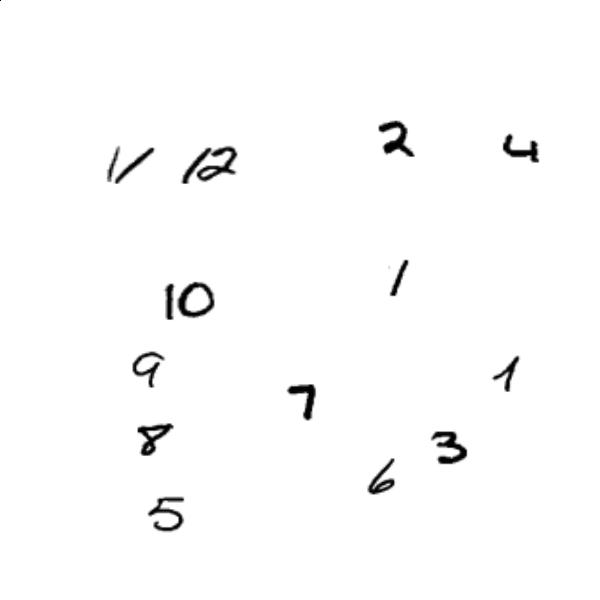 11 12 2 4
10 1
9 7 1
8 3
6
5